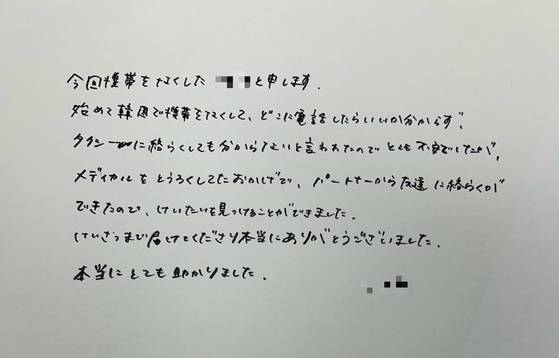 今回携帯をなくした と申します.
始めて韓国で携帯をなくして、どこに電話したらいいか分からず、
タクシーに絡らくしても分からないと言われたのでとても不安でしたが、
メディカルをとうろくしてたおかげで、パートナーから友達に絡らくが
できたので、けいたいを見つけることができました.
けいさつまで届けてくださり本当にありがとうございました.
本当にとても助かりました.